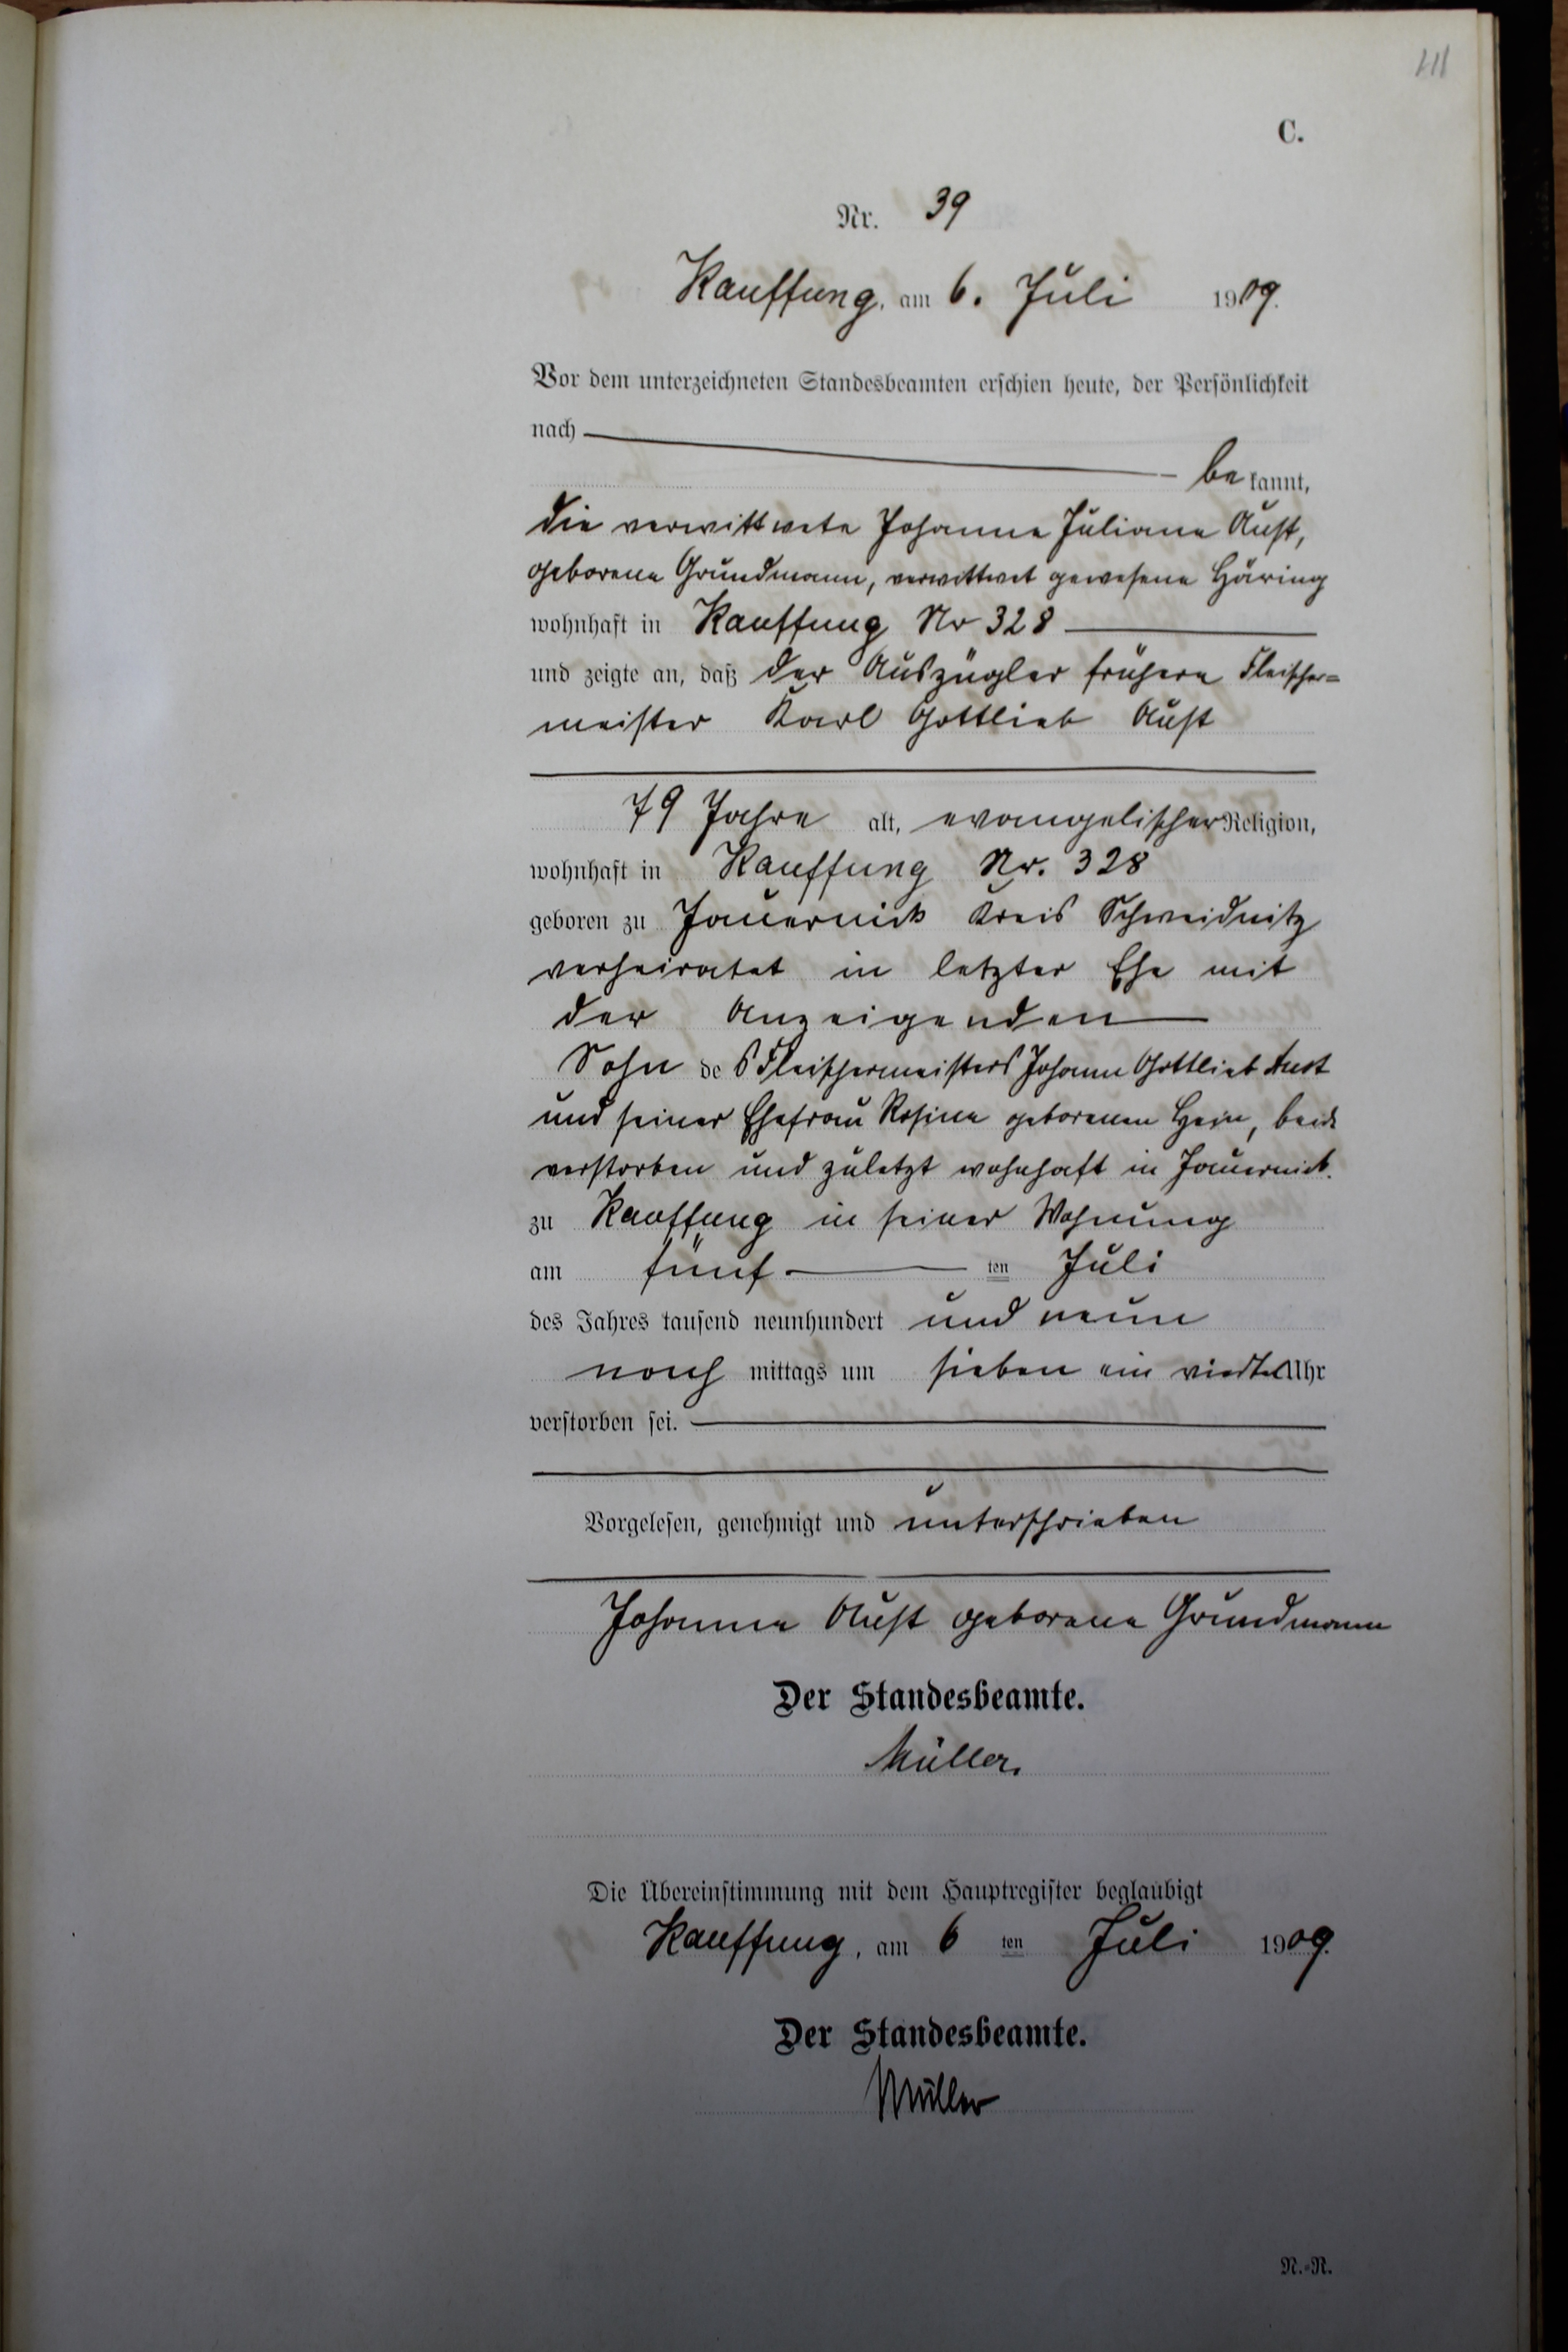 41
C.
Nr. 39
Kauffung, am 6. Juli 1909.
Vor dem unterzeichneten Standesbeamten erschien heute, der Persönlichkeit
nach
be kannt,
die verwittwete Johanne Juliane Aust,
geborene Grundmann, verwittwet gewesene Häring
wohnhaft in Kauffung No 328
und zeigte an, daß der Auszügler frühere Fleischer=
meister Karl Gottlieb Aust
79 Jahre alt, evangelischer Religion,
wohnhaft in Kauffung Nr. 328
geboren zu Jauernick Kreis Schweidnitz
verheiratet in letzter Ehe mit
der Anzeigenden
Sohn des Fleischermeisters Johann Gottlieb Aust
und seiner Ehefrau Rosina geborenen Hein, beide
verstorben und zuletzt wohnhaft in Jauernick.
zu Kauffung in seiner Wohnung
am fünf ten Juli
des Jahres tausend neunhundert und neun
nach mittags um sieben ein viertel Uhr
verstorben sei.
Vorgelesen, genehmigt und unterschrieben
Johanne Aust geborene Grundmann
Der Standesbeamte.
Müller.
Die Übereinstimmung mit dem Hauptregister beglaubigt
Kauffung, am 6 ten Juli 1909.
Der Standesbeamte.
Müller
N.-R.